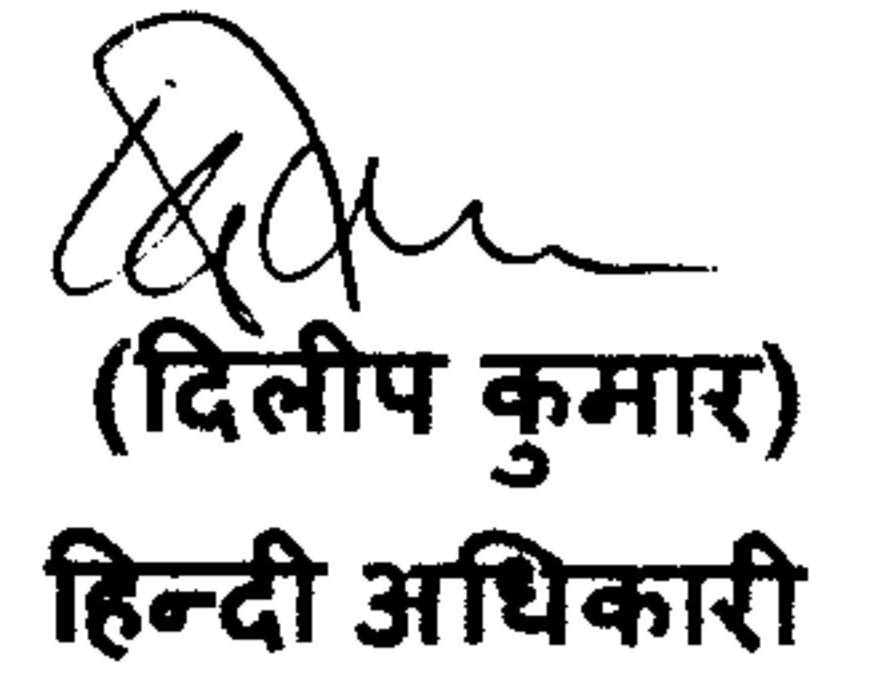 (दिलीप कुमार)
हिन्दी अधिकारी